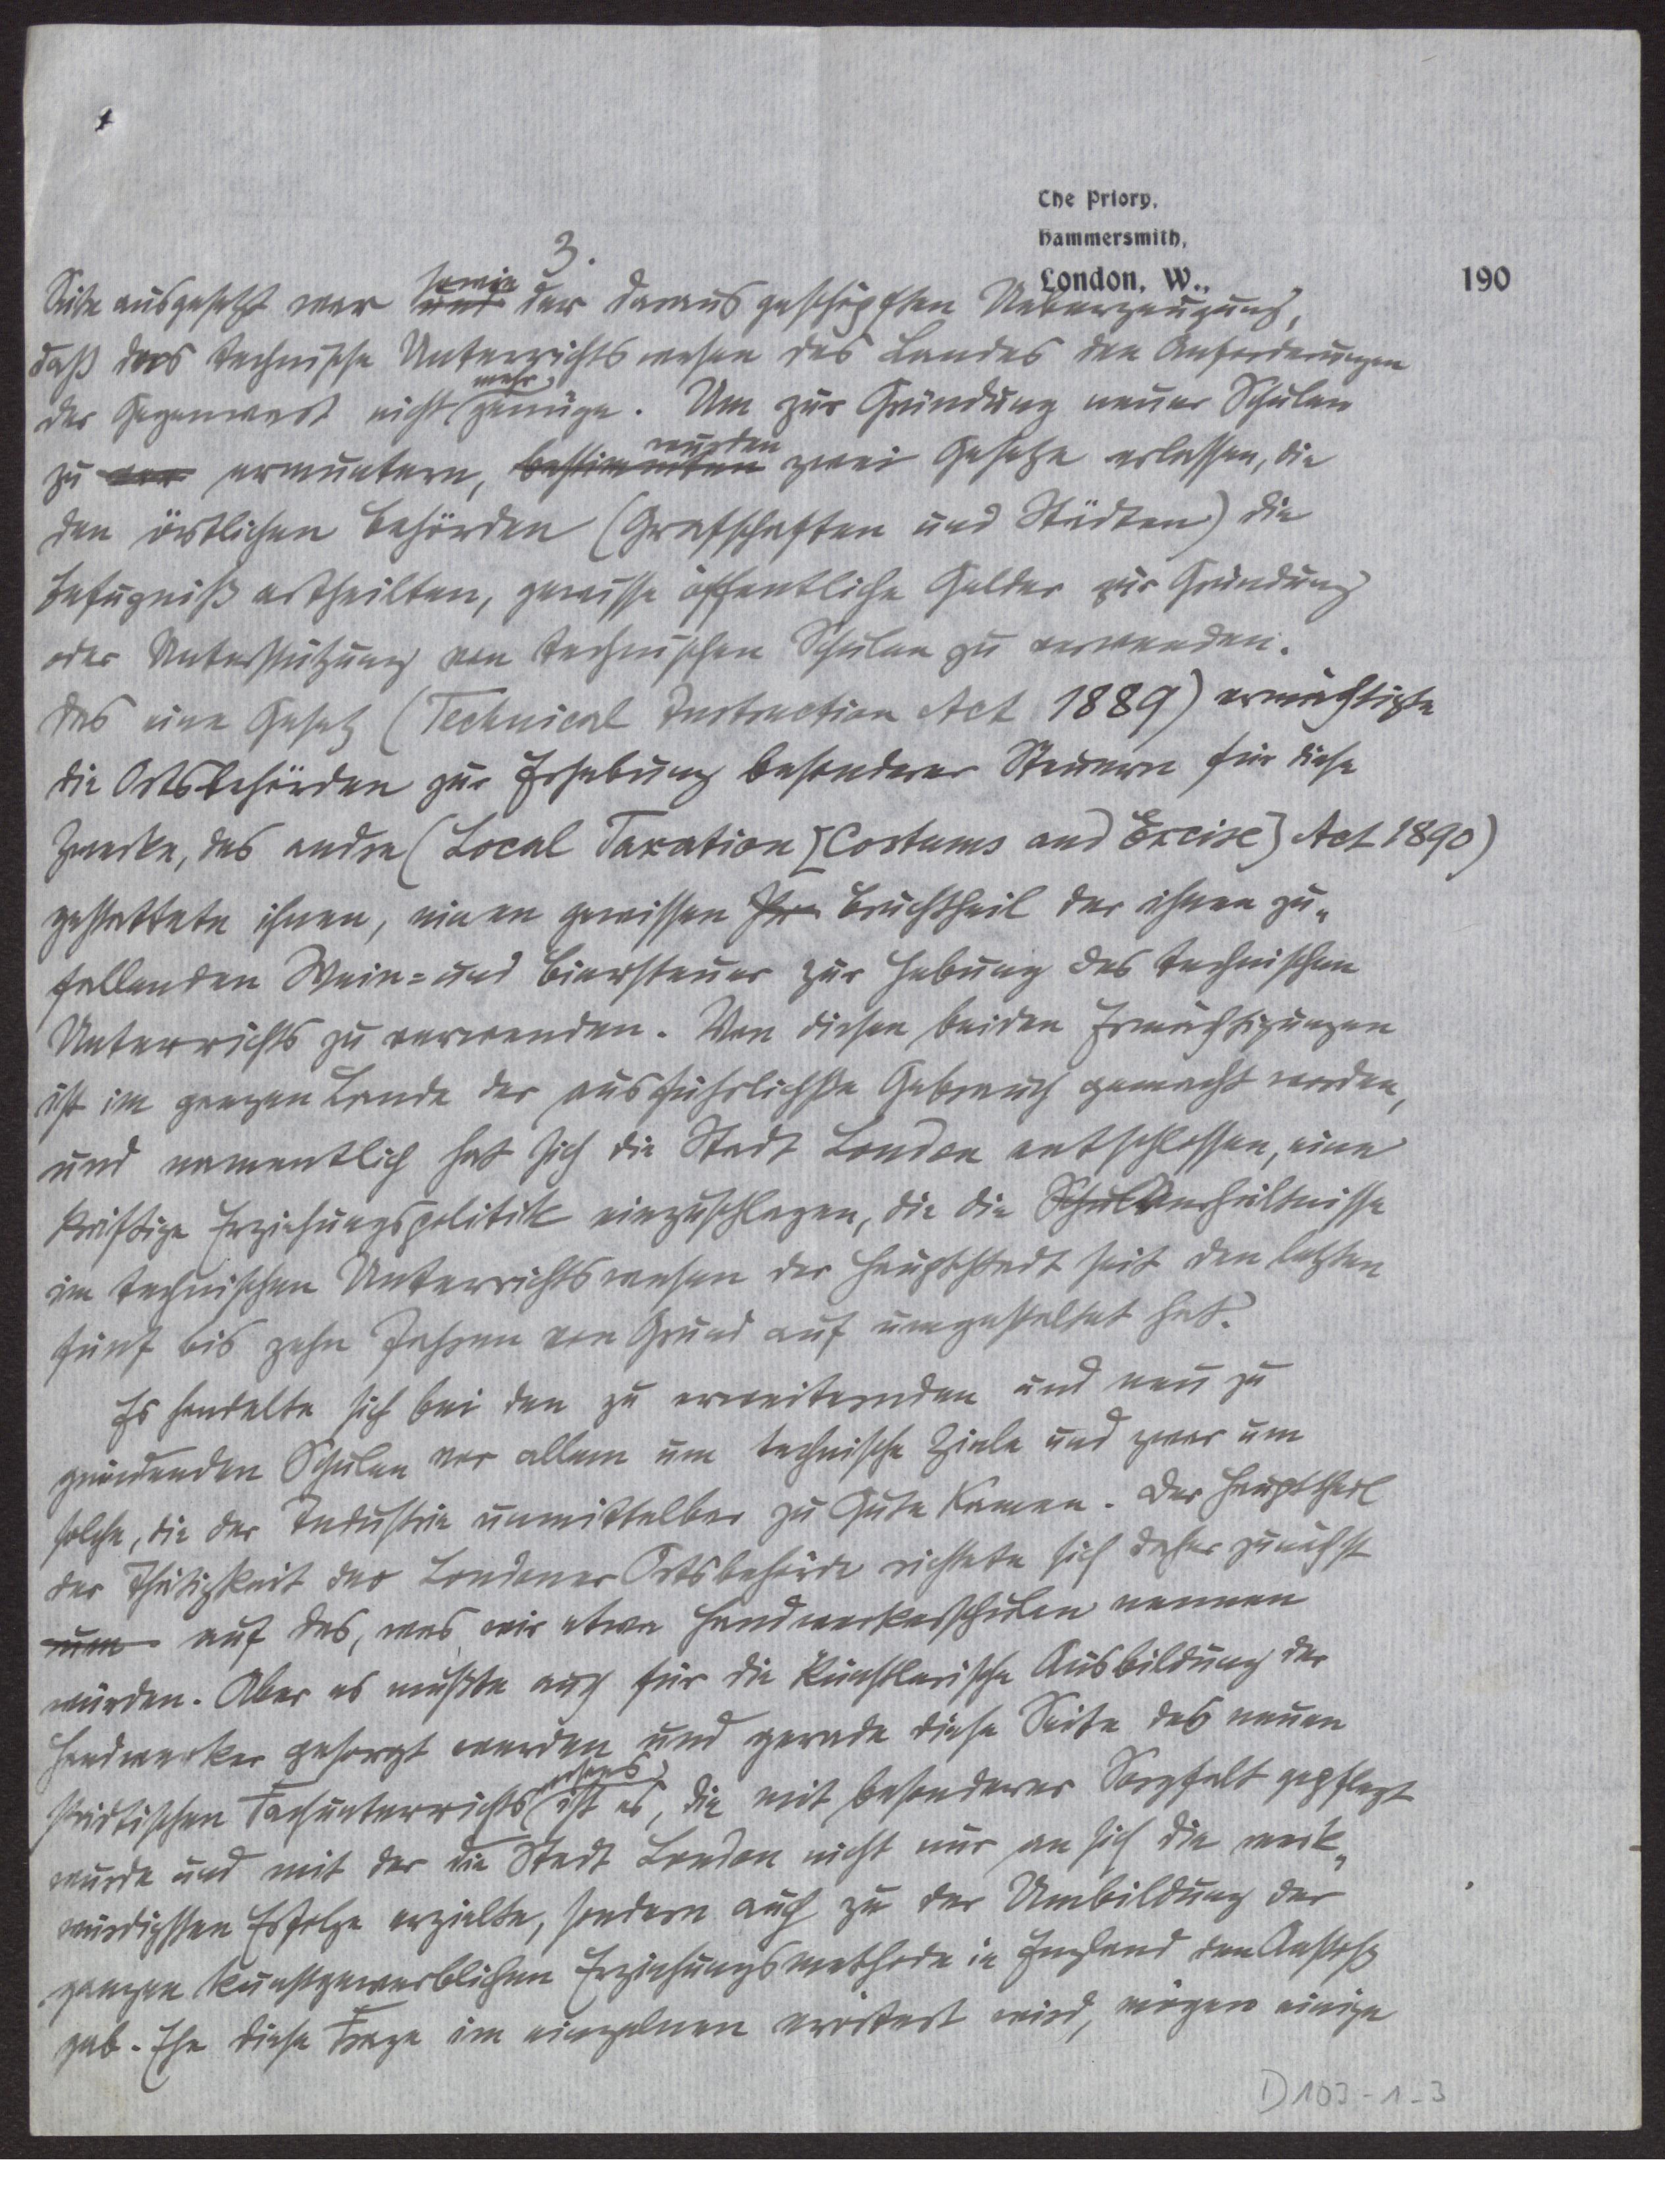 The Priory,
Hammersmith,
London, W.,
190
3.
Seite ausgesetzt war sowie der daraus geschöpften Ueberzeugung,
daß das technische Unterrichtswesen des Landes den Anforderungen
der Gegenwart nicht mehr genüge. Um zur Gründung neuer Schulen
zu ermuntern, wurden zwei Gesetze erlassen, die
den örtlichen Behörden (Grafschaften und Städten) die
Befugniß ertheilten, gewisse öffentliche Gelder zur Gründung
oder Unterstützung von technischen Schulen zu verwenden.
Das eine Gesetz (Technical Instruction Act 1889) ermächtigte
die Ortsbehörden zur Erhebung besonderer Steuern für diese
Zwecke, das andre (Local Taxation [Costums and Excise] Act 1890)
gestattete ihnen, einen gewissen Bruchtheil der ihnen zu-
fallenden Wein- und Biersteuer zur Hebung des technischen
Unterrichts zu verwenden. Von diesen beiden Ermächtigungen
ist im ganzen Lande der ausführlichste Gebrauch gemacht worden,
und namentlich hat sich die Stadt London entschlossen, eine
kräftige Erziehungspolitik einzuschlagen, die die Verhältnisse
im technischen Unterrichtswesen der Hauptstadt seit den letzten
fünf bis zehn Jahren von Grund auf umgestaltet hat.
Es handelte sich bei den zu erweiternden und neu zu
gründenden Schulen vor allem um technische Ziele und zwar um
solche, die der Industrie unmittelbar zu Gute kamen. Der Haupttheil
der Thätigkeit der Londoner Ortsbehörde richtete sich daher zunächst
auf das, was wir etwa Handwerkerschulen nennen
würden. Aber es mußte auch für die künstlerische Ausbildung der
Handwerker gesorgt werden und gerade diese Seite des neuen
städtischen Fachunterrichtswesens ist es, die mit besonderer Sorgfalt gepflegt
wurde und mit der die Stadt London nicht nur an sich die merk-
würdigsten Erfolge erzielte, sondern auch zu der Umbildung der
ganzen kunstgewerblichen Erziehungsmethode in England den Anstoß
gab. Ehe diese Frage im einzelnen erörtert wird, mögen einige
D103-1-3